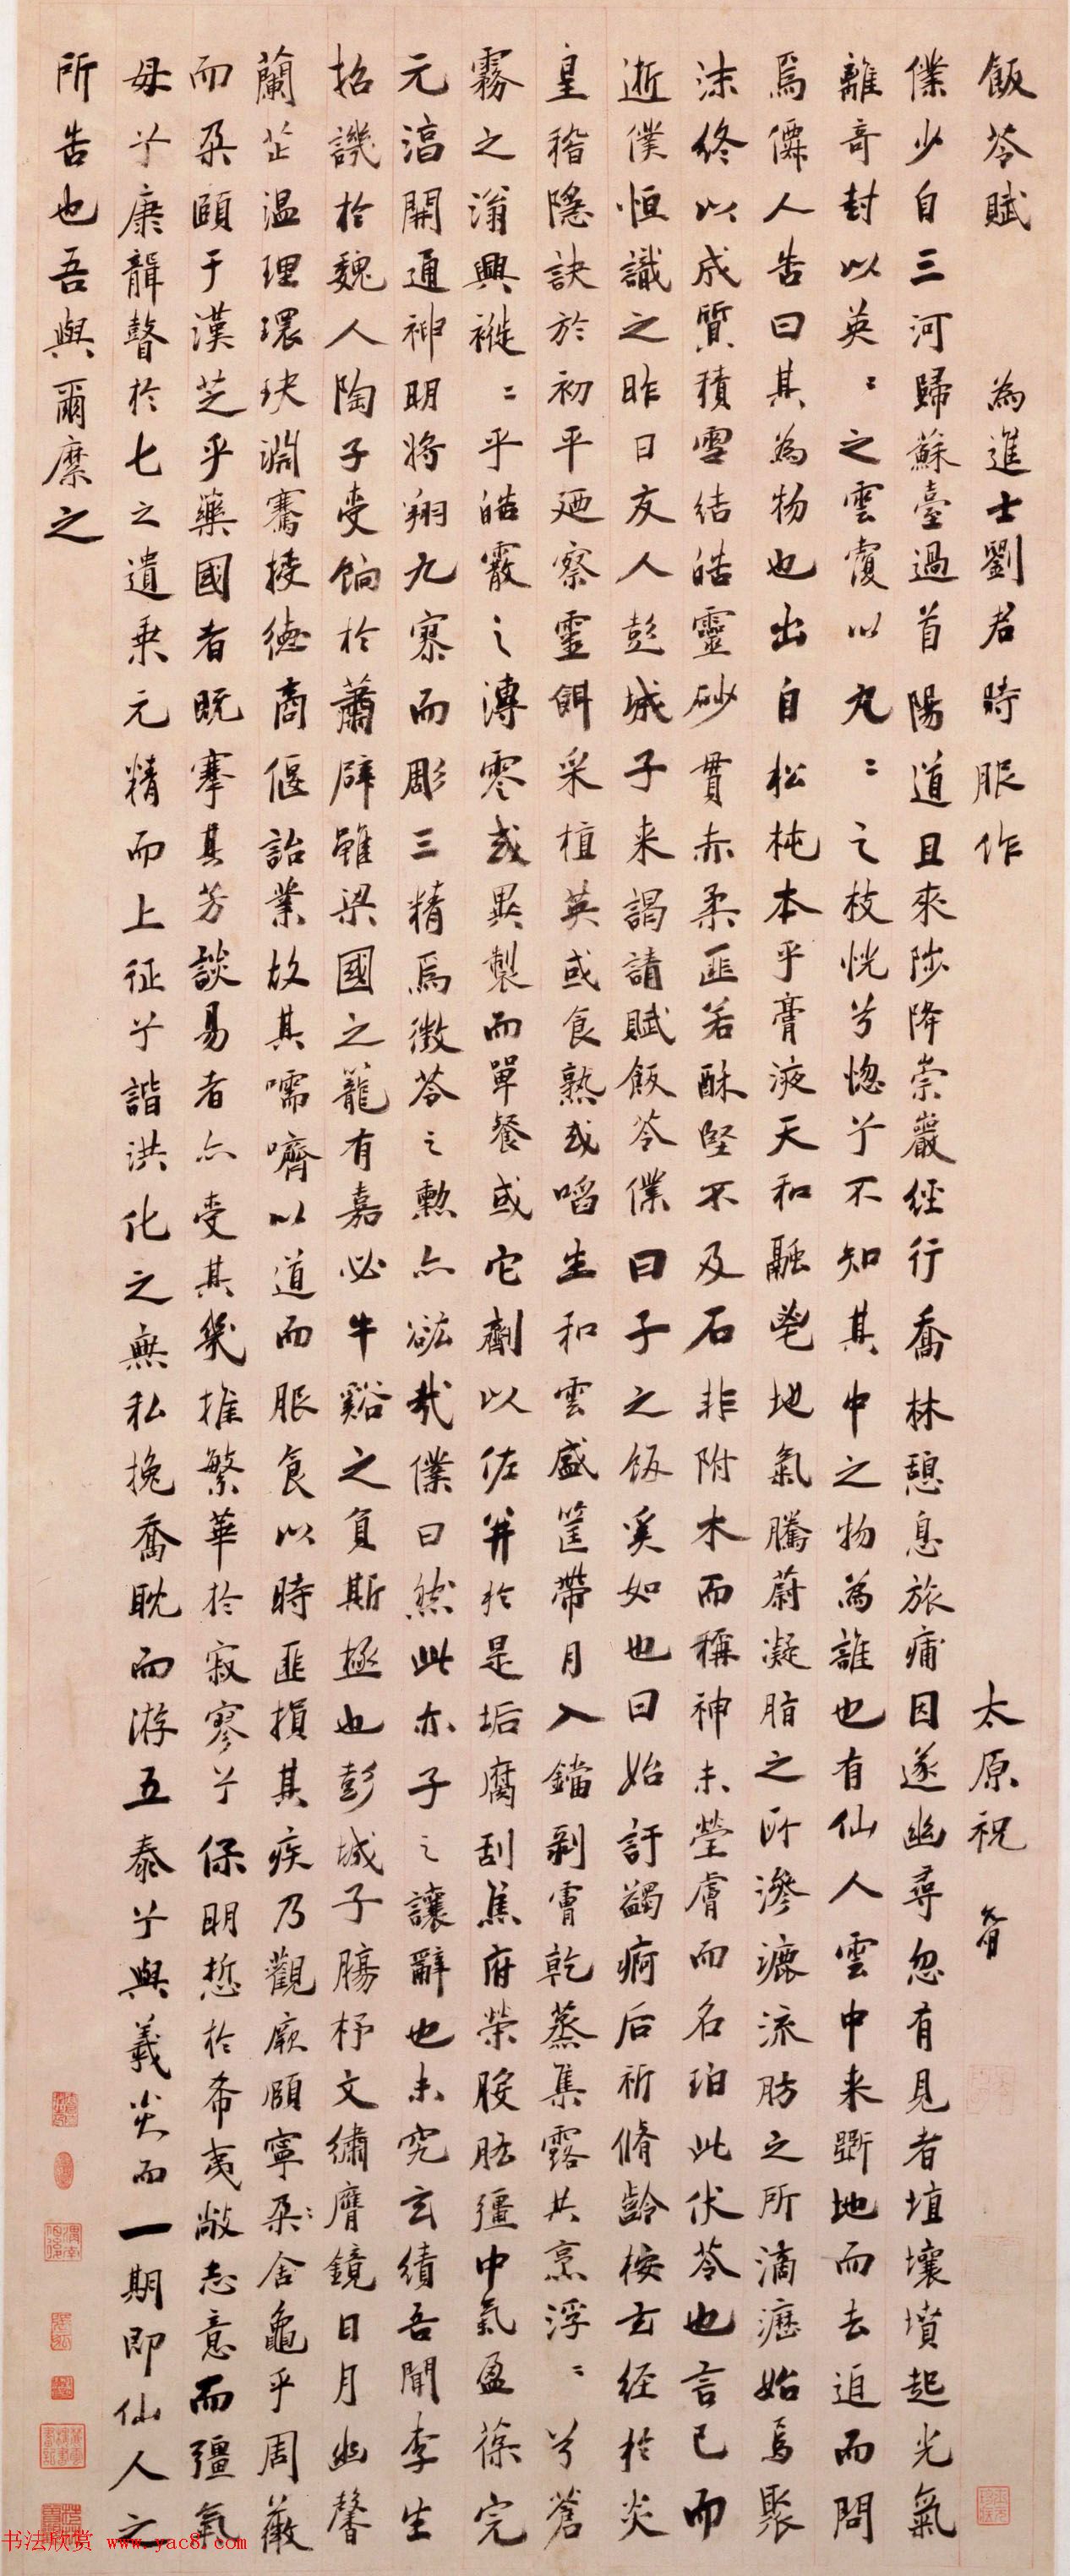 飯苓賦 為進士劉君時服作 太原祝
僕少自三河歸蘇臺過首陽道且來陟降崇巖經行喬林憩息旅痡因遂幽尋忽有見者埴壤墳起光氣
離奇封以英〻之雲覆以丸〻之枝恍兮惚兮不知其中之物為誰也有仙人雲中来斲地而去追而問
焉僊人告曰其為物也出自松杶本乎膏液天和融鬯地氣騰蔚凝脂之所滲漉流肪之所滴瀝始焉聚
沫終以成質積雪結皓靈砂貫赤柔匪若酥堅不及石非附木而稱神未瑩膚而名珀此伏苓也言已而
逝僕恒識之昨日友人彭城子来謁請賦飯苓僕曰子之飯奚如也曰始訝蠲痾后祈脩齡桉玄経於炎
皇稽隱訣於初平廼察靈餌采植英或食熟或啗生和雲盛筐帶月入鐺剥膚乾蒸集露共烹浮〻兮蒼
霧之滃興褷〻乎皓霰之漙零或異製而單餐或它劑以佐并於是垢腐刮焦府荣胺胠彊中氣盈葆完
元滈開通神明將翔九寨而彫三精焉徵苓之勳亦竑哉僕曰然此亦子之讓辭也未究玄績吾聞李生
招譏於魏人陶子受餉於蕭辟雖梁國之籠有嘉必牛谿之負斯極也彭城子腸杼文繡膺鏡日月幽馨
蘭芷温理環玦淵騫接德商偃詒業故其嚅嚌以道而服食以時匪損其疾乃觀厥頤寧朶〻舍龜乎周薇
而朶頤于漢芝乎藥國者既搴其芳談易者亦受其幾推繁華於寂寥兮保明悊於希夷敞志意而彊氣
毋兮康韻聲於七之遺乗元精而上征兮諧洪化之無私挽喬耽而游五泰兮與羲炎而一期即仙人之
所告也吾與爾縻之
书法欣赏 www.yac8.com